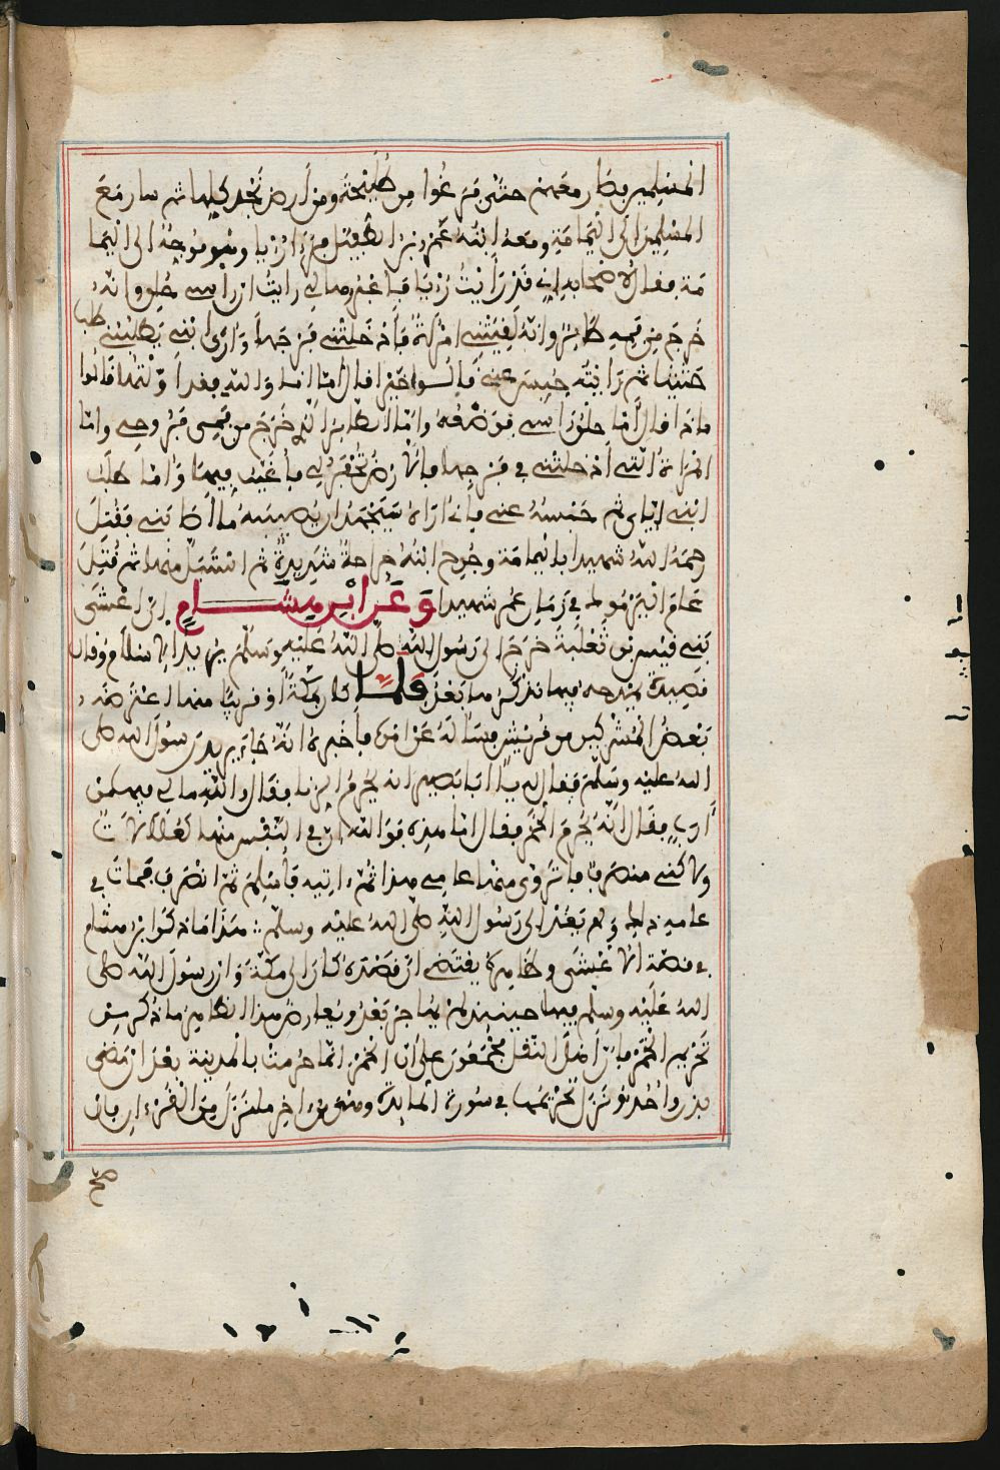 المسلمين وصار معهم حتى فرغوا من طليحة ومن ارض نجد كلها ثم سار مع
المسلمين الى اليمامة ومعه ابنه عمرو بن الطفيل فرءا رؤيا وهو موجه الى اليما
مة فقال لاصحابه اني قد رأيت رؤيا فاعبروها لي رأيت ان راسي حلق وانه
خرج من فمي طائر وانه لقيتني امرأة فأدخلتني في فرجها وأرى ابني يطلبني طلبا
حثيثا ثم رأيته حبس عني قالوا خيرا قال أما انا والله فقد أولتها قالوا
ماذا قال أما حلق راسي فوضعه واما الطائر الذي خرج من فمي فروحي واما
المرأة التي أدخلتني في فرجها فالأرض تحفر لي فأغيب فيها وأما طلب
ابني إياي ثم حبسه عني فإني أراه سيجهد أن يصيبه ما أصابني فقتل
رحمه الله شهيدا باليمامة وجرح ابنه جراحة شديدة ثم استبل منها ثم قتل
عام اليرموك في زمان عمر شهيدا وعن ابن هشام إن اعشى
بني قيس بن ثعلبة خرج الى رسول الله صلى الله عليه وسلم يريد الاسلام وقال
قصيدة يمدحه فيها نذكرها بعد فلما كان بمكة أو قريبا منها اعترضه
بعض المشركين من قريش فسأله عن امره فأخبره انه جاء يريد رسول الله صلى
الله عليه وسلم فقال له يا أبا بصير انه يحرم الزنا فقال والله ما لي فيه من
أرب فقال انه يحرم الخمر فقال اما هذه فوالله ان في النفس منها لعلالات
ولاكني منصرف فأتروى منها عامي هذا ثم ءاتيه فأسلم ثم انصرف فمات في
عامه ذلك ولم يعد الى رسول الله صلى الله عليه وسلم هذا ما ذكر ابن هشام
في قصة الاعشى وظاهرها يقتضي ان قصده كان الى مكة وان رسول الله صلى
الله عليه وسلم فيها حينئذ لم يهاجر بعد ويعارض هذا الظاهر ما ذكر من
تحريم الخمر فان أهل النقل مجمعون على أن الخمر انما حرمت بالمدينة بعد ان مضى
بدر وأحد ونزل تحريمها في سورة المائدة وهي من ءاخر ما نزل من القرءان فان
صح